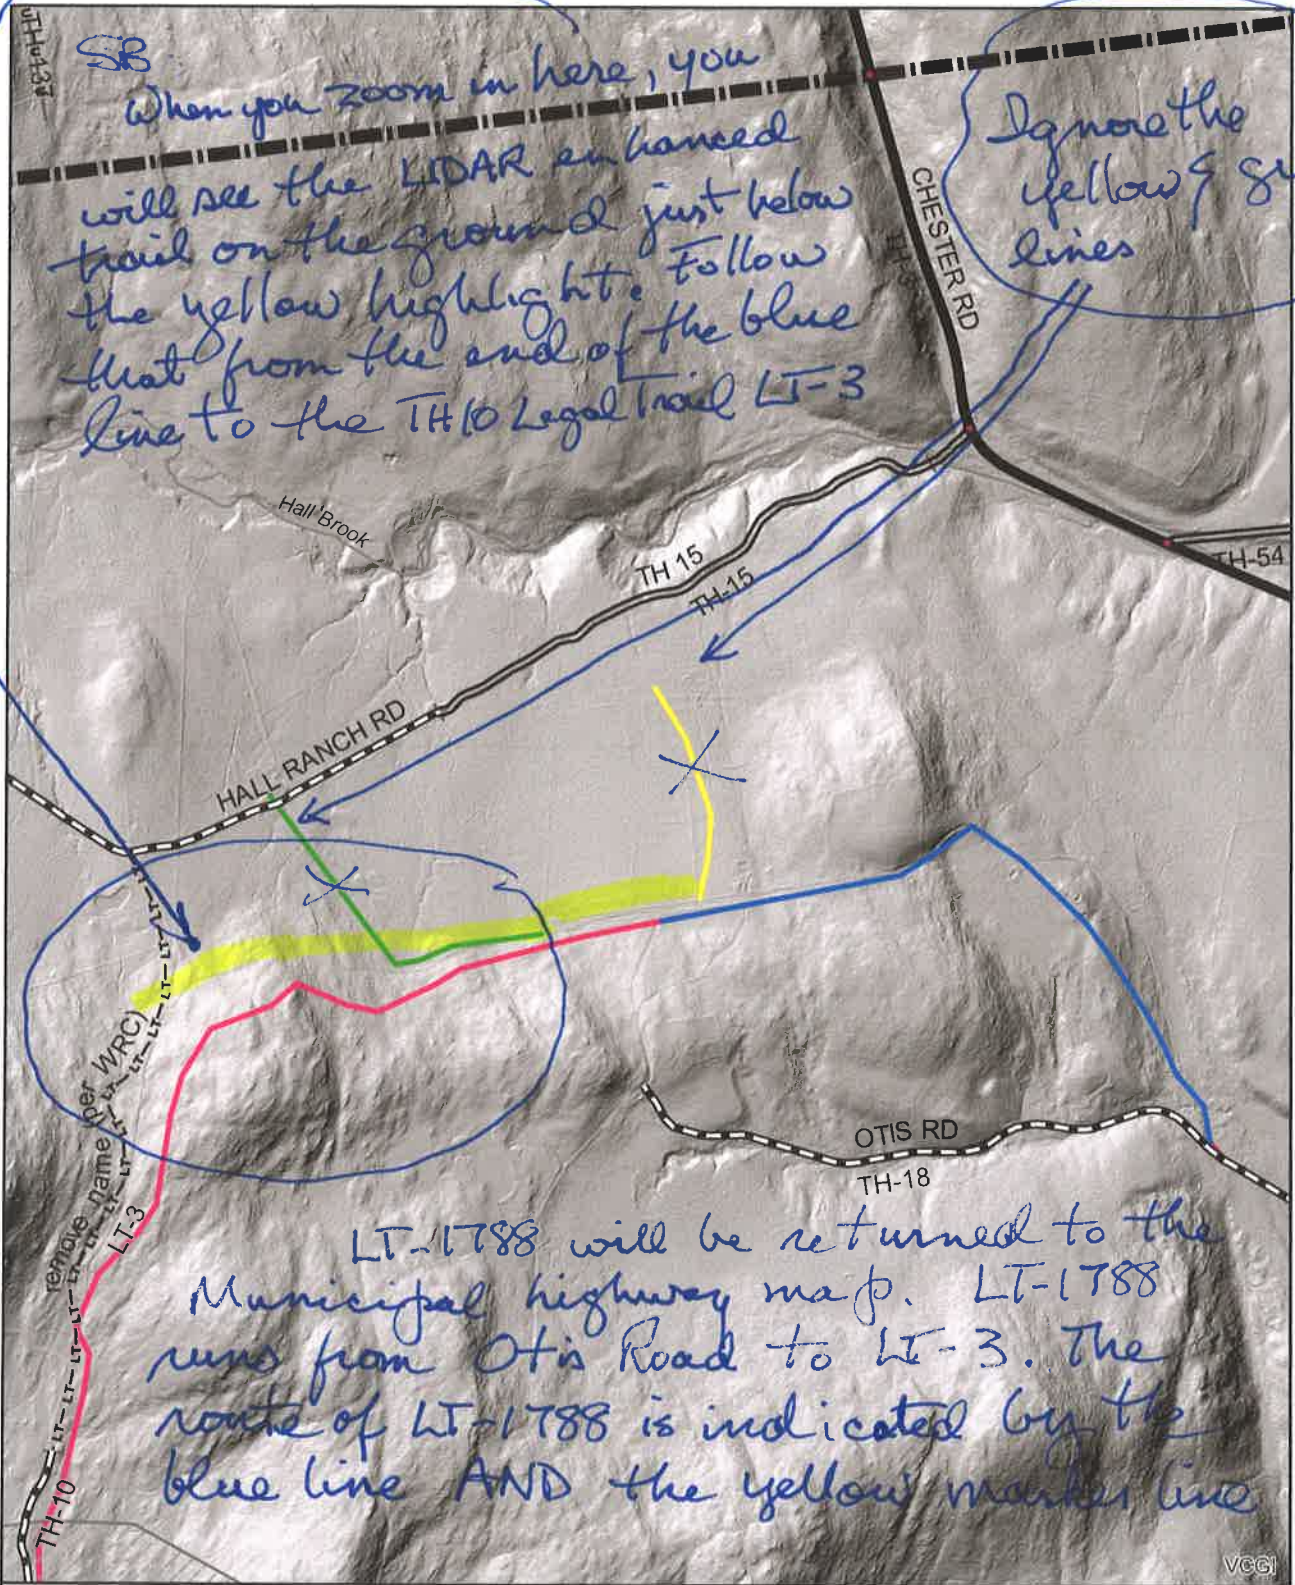 SB
When you zoom in here, you
will see the LIDAR enhanced
trail on the ground just below
the yellow highlight. Follow
that from the end of the blue
line to the TH10 Legal Trail LT-3
Ignore the
yellow &
lines
CHESTER RD
Hall Brook
TH 15
TH-15
TH-54
HALL RANCH RD
LT
LT
LT
LT
LT
remove name (per WRC)
LT-3
OTIS RD
TH-18
LT-1788 will be returned to the
Municipal highway map. LT-1788
runs from Otis Road to LT-3. The
route of LT-1788 is indicated by the
blue line AND the yellow marker line
TH-10
VCGI